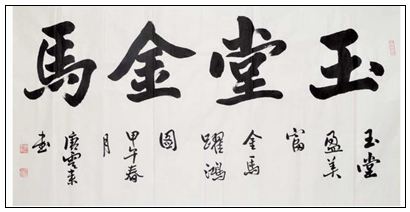 玉堂金馬
玉堂
盈美
富
金馬
躍鴻
圖
甲午春
月
唐雲來
書